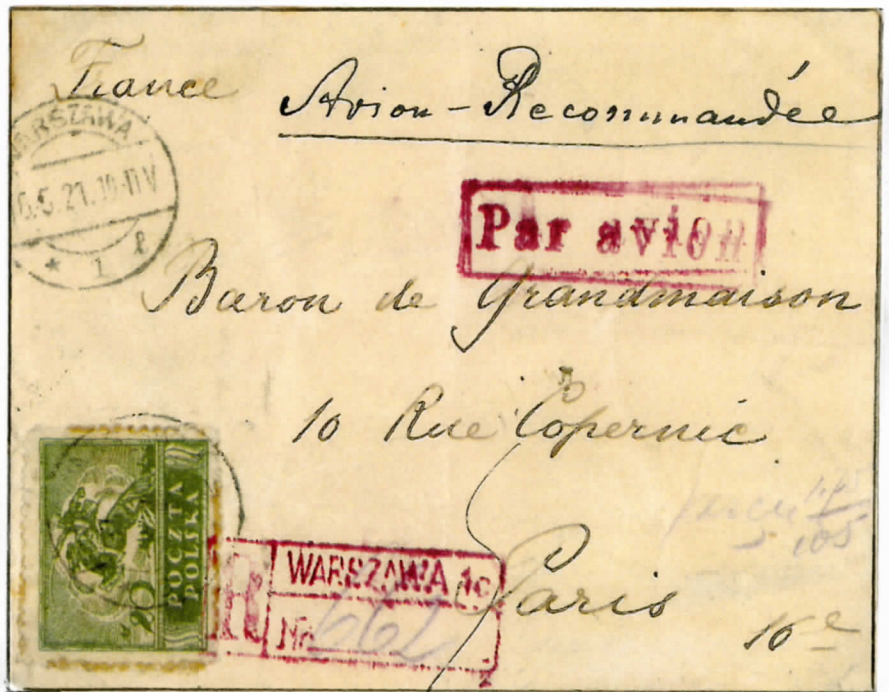 France
Avion - Recommandée
WARSZAWA
6.5.21.10-11V
* 1 ℓ
Par avion
Baron de Grandmaison
10 Rue Copernic
Paris
16e
20
POCZTA
POLSKA
R
WARSZAWA 1c
No 662
105